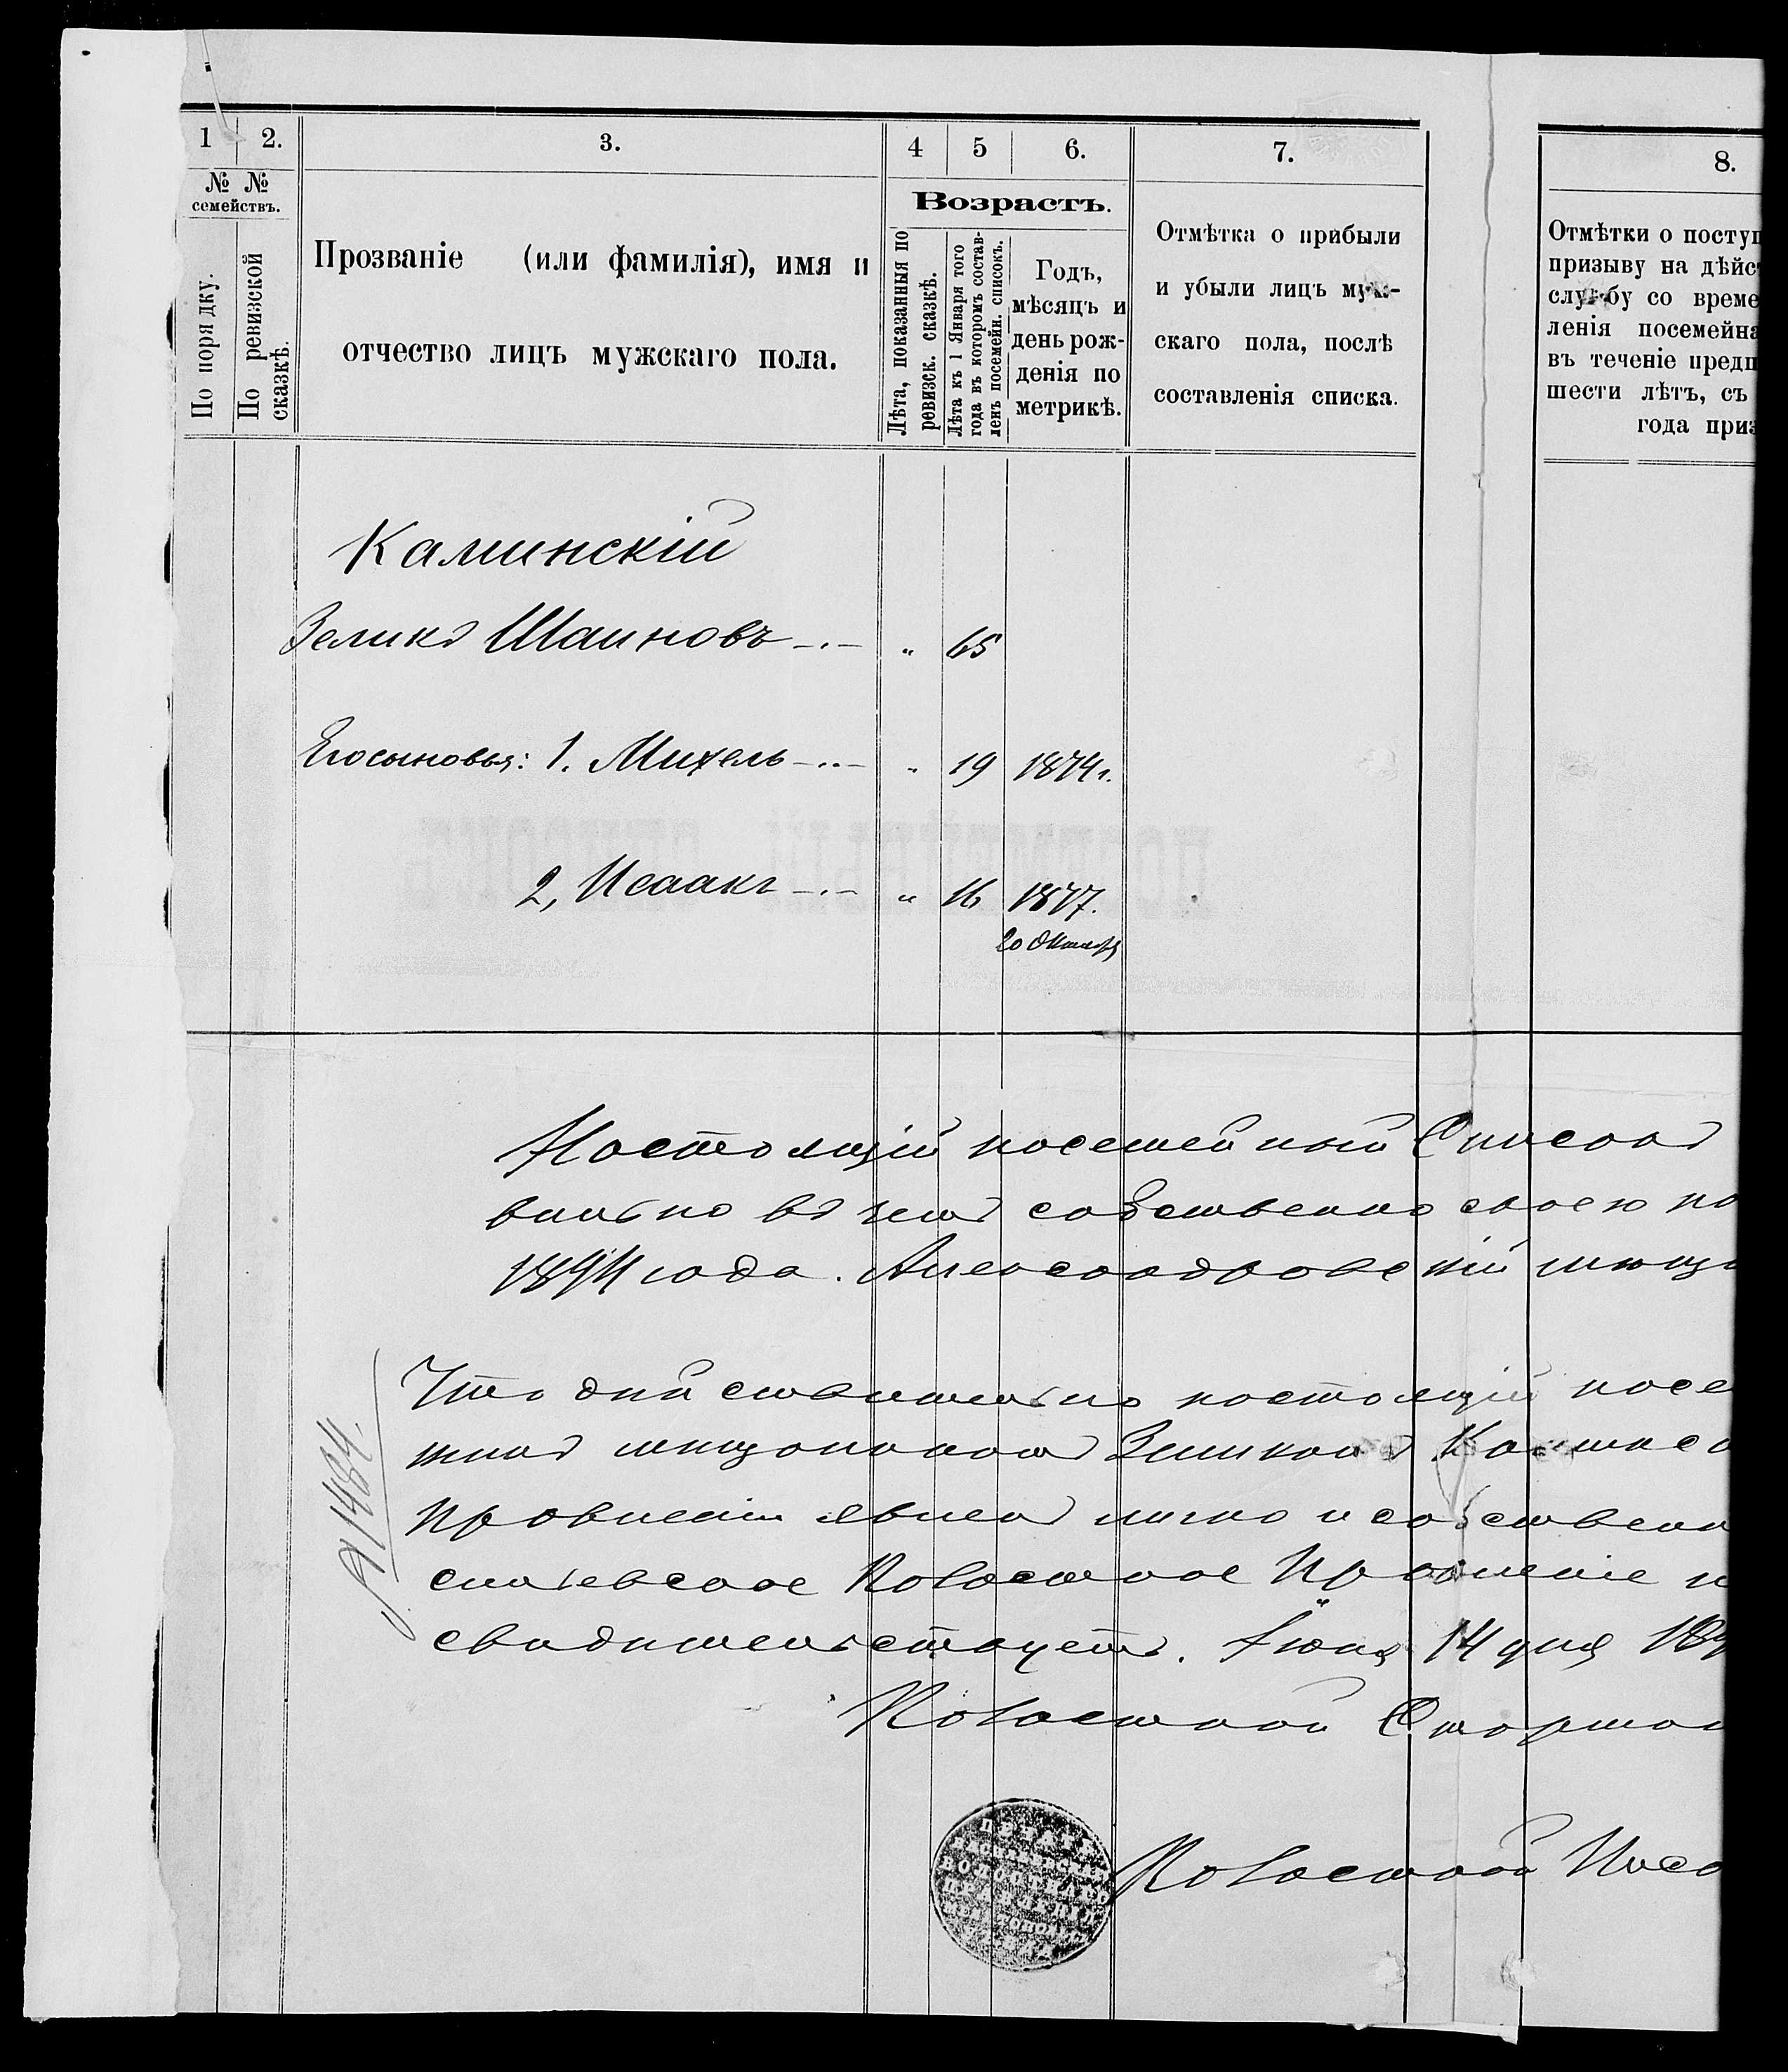 1 2. 3. 4 5 6. 7. 8.
№ № семействъ.
По порядку.
По ревизской сказкѣ.
Прозваніе (или фамилія), имя и
отчество лицъ мужскаго пола.
Возрастъ.
Лѣта, показанныя по ревизск. сказкѣ.
Лѣта къ 1 Января того года въ которомъ составленъ посемейн. списокъ.
Годъ,
мѣсяцъ и
день рож-
денія по
метрикѣ.
Отмѣтка о прибыли
и убыли лицъ муж-
скаго пола, послѣ
составленія списка.
Отмѣтки о поступ
призыву на дѣйс
службу со време
ленія посемейна
въ теченіе предп
шести лѣтъ, съ
года приз
Каминскій
Зеликъ Шаиновъ -.- " 65
Его сыновья: 1. Михель -..- " 19 1874 г.
2, Исаакъ -.- " 16 1877.
20 Октября
Настоящій посемейный Список
вильно въ чемъ собственно своею по
1894 года. Александровскій мѣща
Что дѣйствительно настоящій посе
щанином Зеликомъ Каминс
Правленіи явися лично и собствен
Волостное Правленіе и
свидѣтельствуетъ. Іюня 14 дня 189
Волостной Старшин
№ 1484.
Волостной Писа
ПЕЧАТЬ
ВОЛОСТНАГО